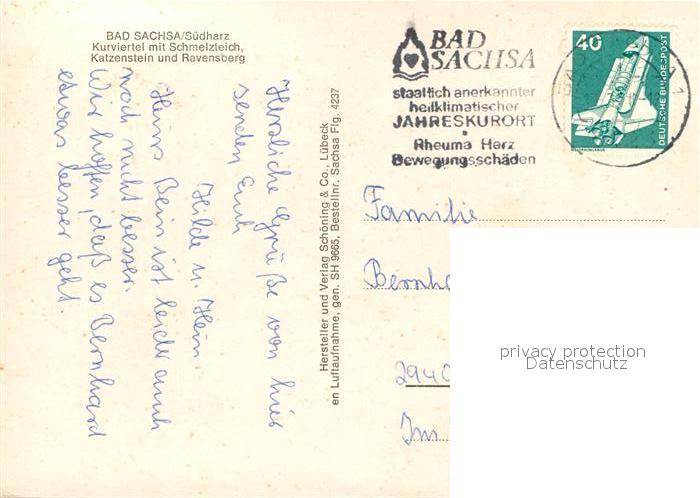 BAD SACHSA/Südharz
Kurviertel mit Schmelzteich,
Katzenstein und Ravensberg
Herzliche Grüße von hier
senden Euch
Hilde u. Hein
Heins Bein ist leider auch
noch nicht besser.
Wir hoffen, daß es Bernhard
etwas besser geht.
Hersteller und Verlag Schöning & Co., Lübeck
en Luftaufnahme, gen. SH 9665, Bestellnr. Sachsa Flg. 4237
BAD
SACHSA
staatlich anerkannter
heilklimatischer
JAHRESKURORT
Rheuma Herz
Bewegungsschäden
40
DEUTSCHE BUNDESPOST
Familie
Bernh
2940
Im
privacy protection
Datenschutz